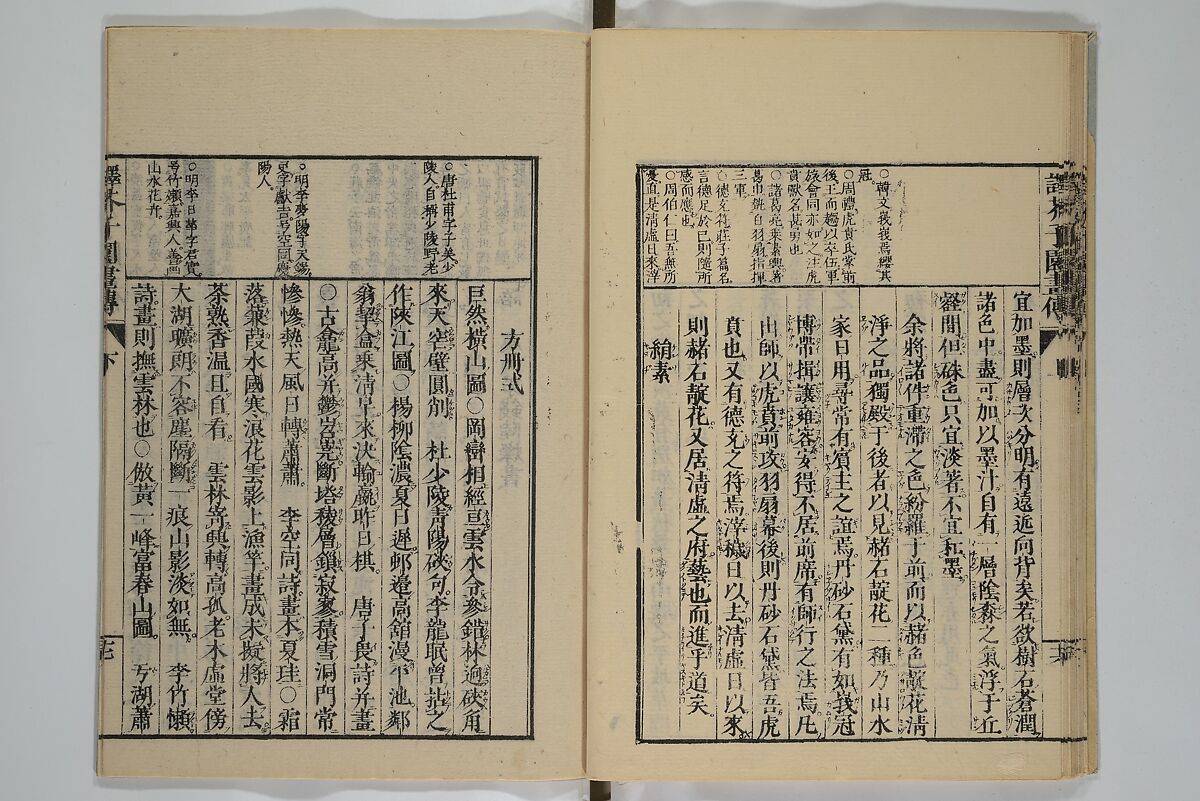 宜加墨則層次分明有遠近向背矣若欲樹石蒼潤
諸色中盡可加以墨汁自有一層陰森之氣浮于丘
壑間但硃色只宜淡著不宜和墨
余將諸件重滯之色紛羅于前而以赭色靛花淸
淨之品獨殿于後者以見赭石靛花一種乃山水
家日用尋常有賓主之誼焉丹砂石黛有如峩冠
博帶揖讓雍容安得不居前席有師行之法焉凡
出師以虎賁前攻羽扇幕後則丹砂石黛皆吾虎
賁也又有德充之符焉滓穢日以去淸虛日以來
則赭石靛花又居淸虛之府藝也而進乎道矣
絹素
○韓文峩峩焉纓其
冠
○周禮虎賁氏掌前
後王而趨以卒伍軍
旅會同亦如之注虎
賁獸名甚勇也
○諸葛亮乘素輿著
葛巾執白羽扇指揮
三軍
○德充符莊子篇名
言德足於己則隨所
感而應也
○周伯仁曰吾無所
憂直是淸虛日來滓
譯芥子園畫傳
方冊式
巨然橫山圖○岡巒相經亘雲水合參錯林迥硤角
來天空壁圓削 杜少陵靑陽硤句李龍眠曾拈之
作陜江圖○楊柳陰濃夏日遲邨邊高舘漫平池鄰
翁挈盒乘淸早來決輸贏昨日棋 唐子畏詩幷畫
○古龕高幷鬱岧嶤斷塔稜層鎖寂寥積雪洞門常
慘慘熱天風日轉蕭蕭 李空同詩畫本夏珪○霜
落蒹葭水國寒浪花雲影上漁竿畫成未擬將人去
茶熟香溫且自看 雲林寄興轉高孤老木虛堂傍
大湖曠朗不容塵隔斷一痕山影淡如無 李竹懶
詩畫則撫雲林也○倣黃一峰富春山圖 丂湖蕭
○唐杜甫字子美少
陵人自稱少陵野老
○明李夢陽字天錫
更字獻吉号空同慶
陽人
○明李日華字君實
号竹嬾嘉興人善畫
山水花卉
譯芥子園畫傳
下